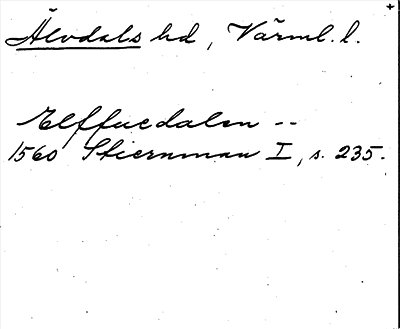 Älvdals hd, Värml. l.
Elffuedalen --
1560 Stiernman I, s. 235.